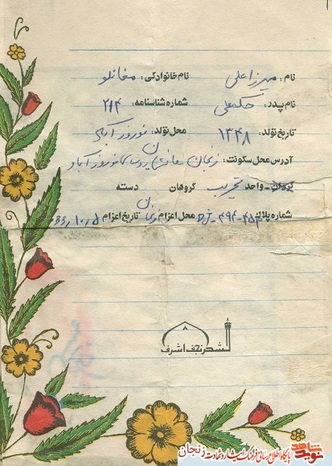 نام: میرزاعلی نام خانوادگی: مغانلو
نام پدر: حکمعلی شماره شناسنامه: ۲۱۴
تاریخ تولد: ۱۳۴۸ محل تولد: نوروز آباد
آدرس محل سکونت: زنجان نوروز آباد
گردان - واحد تخریب گروهان دسته
شماره پلاک محل اعزام زنجان تاریخ اعزام
لشکر نجف اشرف
نوید شاهد پایگاه اطلاع رسانی فرهنگ ایثار و شهادت زنجان